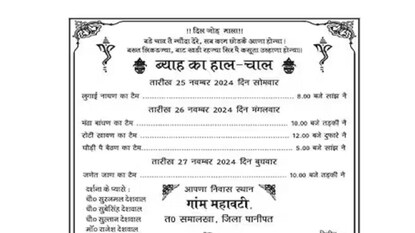 ।। दिल जोड़ माला।।
बडे चाव तै न्यौंदा देरे, सब काम छोडके आणा होज्या।
बखत लिकडज्या, बाट खडी रहज्या सिर पै कसूता उल्हाणा होज्या।।
ब्याह का हाल-चाल
तारीख 25 नवम्बर 2024 दिन सोमवार
लुगाई गावण का टैम 8.00 बजे सांझ नै
तारीख 26 नवम्बर 2024 दिन मंगलवार
मंढा बांधण का टैम 10.00 बजे तड़की नै
रोटी खावण का टैम 12.00 बजे दुफारी नै
घोड़ी पै बैठण का टैम 5.00 बजे सांझ नै
तारीख 27 नवम्बर 2024 दिन बुधवार
जणेत जाण का टैम 10.00 बजे तड़की नै
दर्शना के प्यासे :
चौ० सुरजमल देशवाल
चौ० सुबेसिंह देशवाल
चौ० सुल्तान देशवाल
मॉ० राजेश देशवाल
आपणा निवास स्थान
गांम महावटी,
त० समालखा, जिला पानीपत